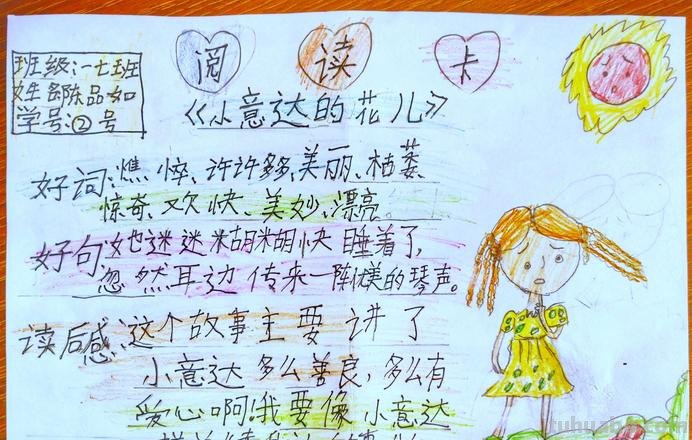 阅读卡
班级:一七班
姓名 陈品如
学号:②号
《小意达的花儿》
好词:憔悴、许许多多、美丽、枯萎、
惊奇、欢快、美妙、漂亮。
好句:她迷迷糊糊快睡着了,
忽然耳边传来一阵优美的琴声。
读后感:这个故事主要讲了
小意达多么善良,多么有
爱心啊!我要像小意达